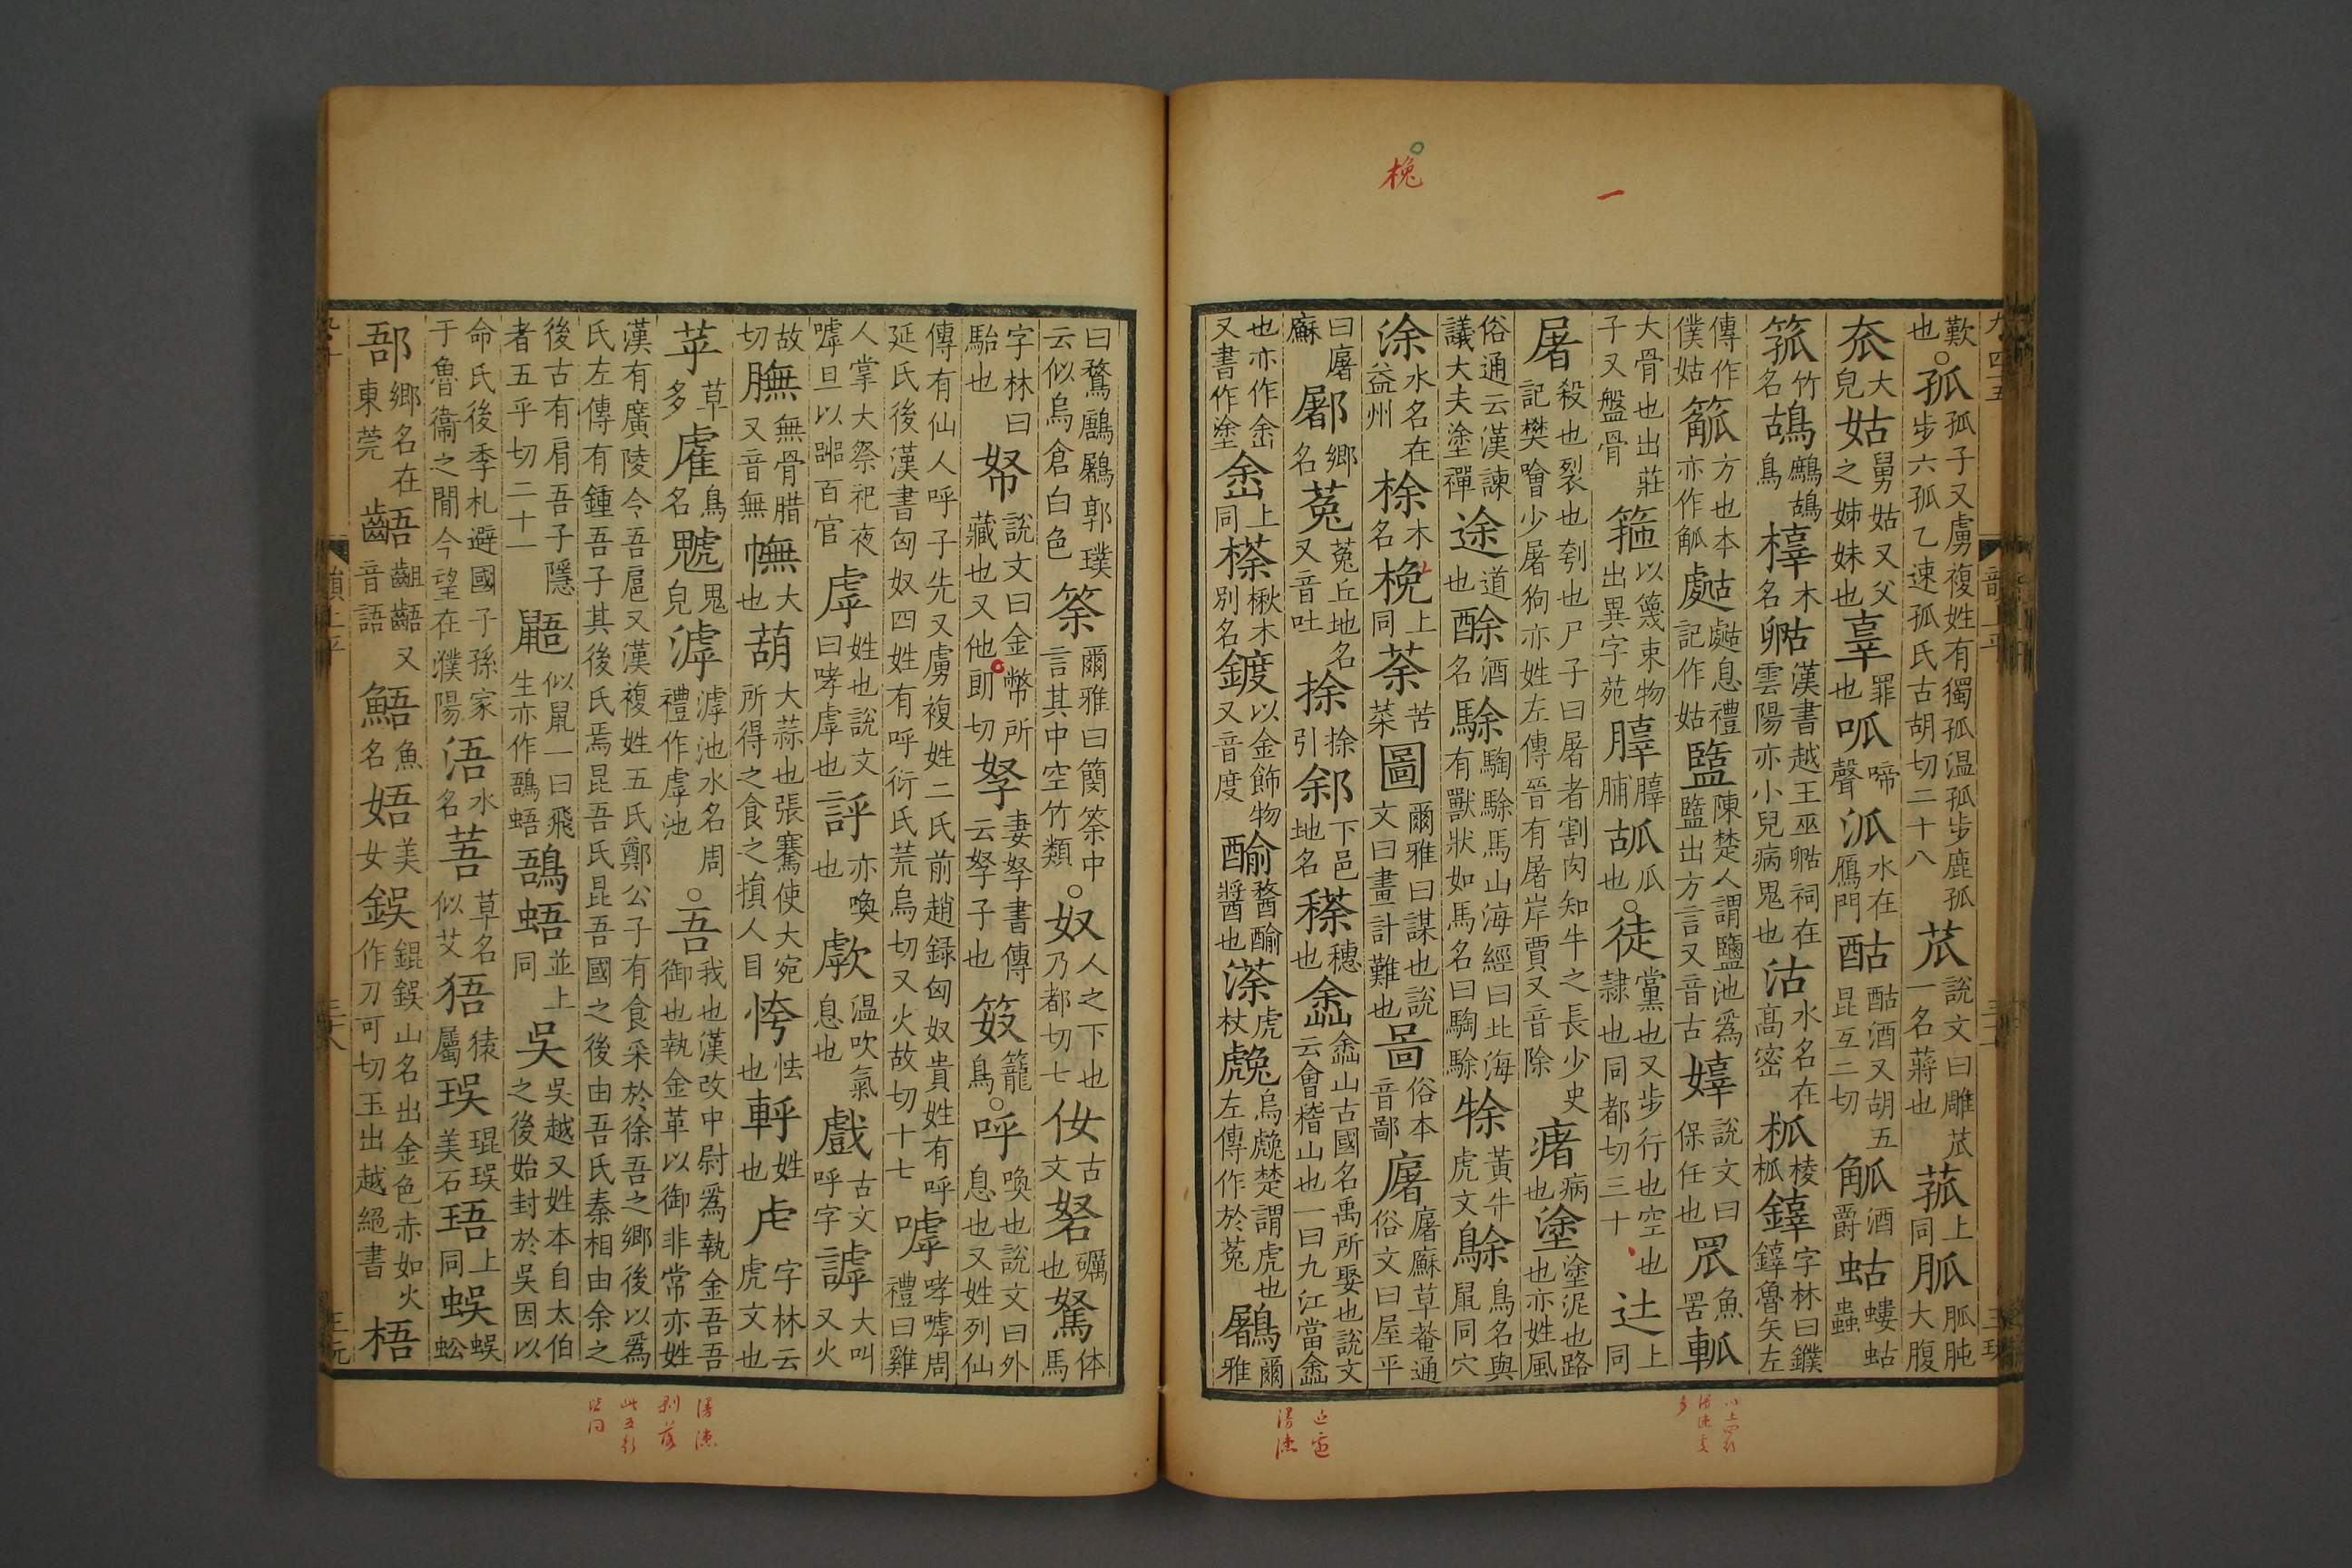 歎也○孤孤子又虜複姓有獨孤温孤步鹿孤步六孤乙速孤氏古胡切二十八苽說文曰雕苽一名蔣也菰上同胍胍肫大腹
夻大皃姑舅姑又父之姊妹也辜罪也呱啼聲泒水在鴈門酤酤酒又胡五昆互二切觚酒爵蛄螻蛄蟲
箛竹名鴣鷓鴣鳥橭木名漢書越王巫祠在雲陽亦小兒病鬼也沽水名在高密柧棱柧鐼字林曰鏷魯矢左
傳作僕姑觚方也本亦作觚息禮記作姑盬陳楚人謂鹽池爲盬出方言又音古嫴說文曰保任也罛魚罟軱
大骨也出莊子又盤骨箍以篾束物出異字苑膊脯瓜也○徒黨也又步行也空也隸也同都切三十辻上同
屠殺也裂也刳也尸子曰屠者割肉知牛之長少史記樊噲少屠狗亦姓左傳晉有屠岸賈又音除瘏病也塗塗泥也路也亦姓風
俗通云漢諫議大夫塗禪途道也酴酒名駼騊駼馬山海經曰北海有獸狀如馬名曰騊駼㻌黃牛虎文鵌鳥名與鼠同穴
涂水名在益州梌木名梚上同荼苦菜圖爾雅曰謀也說文曰畫計難也啚俗本音鄙廜廜㢝草菴通俗文曰屋平
曰廜㢝鄏鄉名菟菟丘地名又音吐捈捈引䣄下邑地名稌穗也嵞嵞山古國名禹所娶也說文云會稽山也一曰九江當嵞
也亦作峹又書作塗峹上同楸木別名鍍以金飾物又音度醬也虎杖烏䖘楚謂虎也左傳作於菟鷵爾雅
曰鶩鷵郭璞云似烏倉白色筡爾雅曰簢筡中言其中空竹類○奴人之下也乃都切七伮古文砮礪也駑体馬
字林曰駘也帑說文曰金幣所藏也又他朗切孥妻孥書傳云孥子也笯籠鳥○呼喚也說文曰外息也又姓列仙
傳有仙人呼子先又虜複姓二氏前趙録匈奴貴姓有呼延氏後漢書匈奴四姓有呼衍氏荒烏切又火故切十七嘑哮嘑周禮曰雞
人掌大祭祀夜嘑旦以嘂百官虖姓也說文曰哮虖也評亦喚也歑温吹氣息也戲古文呼字謼大叫又火
故切膴無骨腊又音無幠大也葫大蒜也張騫使大宛所得之食之損人目恗怯也軤姓也虍字林云虎文也
苸草多雐鳥名鬼皃滹滹池水名周禮作虖池○吾我也漢改中尉爲執金吾吾御也執金革以御非常亦姓
漢有廣陵令吾扈又漢複姓五氏鄭公子有食采於徐吾之鄉後以爲氏左傳有鍾吾子其後氏焉昆吾氏昆吾國之後由吾氏秦相由余之
後古有肩吾子隱者五乎切二十一鼯似鼠一曰飛生亦作鼯䳇並上同吳吳越又姓本自太伯之後始封於吳因以
命氏後季札避國子孫家于魯衛之間今望在濮陽浯水名䓊草名似艾㹳猿屬珸琨珸美石珸上同蜈蜈蚣
郚鄉名在東莞齬齟齬又音語䱐魚名娪美女鋘錕鋘山名出金色赤如火作刀可切玉出越絕書梧
梚
一